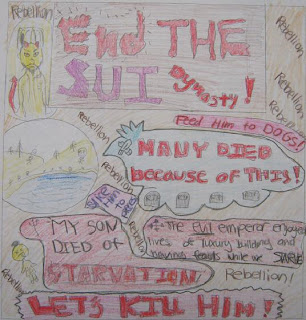 Rebellion
End THE
SUI Dynasty!
Rebellion
Rebellion
Rebellion
Rebellion
Feed Him to DOGS!
Rebellion
MANY DIED
BECAUSE OF THIS!
Rebellion
MY SON
DIED OF
STARVATION
Rebellion
The EVIL emperor enjoyed
lives of luxury building and
having feasts while we STARVE
Rebellion!
Rebellion
LET'S KILL HIM!